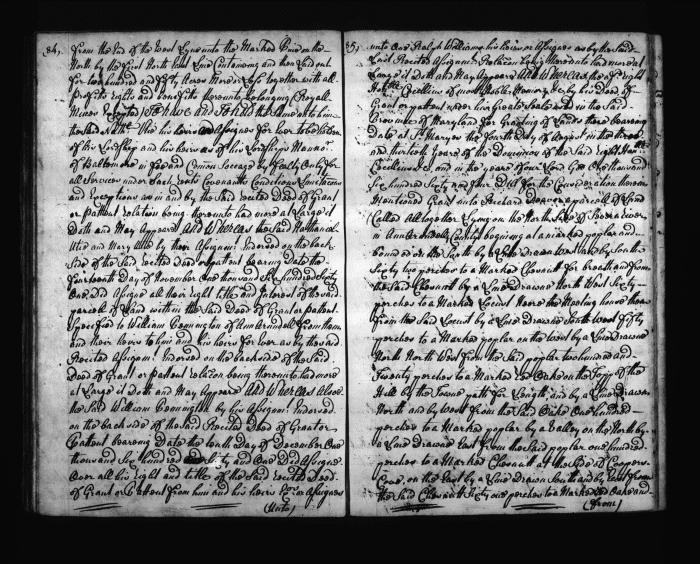 84,
From the End of the West Lyne unto the Marked Pine on the
North by the first North West Line Containing and then Laid out
for two hundred and fifty Acres More or Less together with all
Profits rights and benefits thereunto belonging Royall
Mines Excepted To have and to hold the same unto him
the said Nath: Utie his heirs and Assignes for Ever to be holden
of his Lordship and his heirs as of his Lordships Mannor
of Baltemore in free and Comon Soccage by fealty Only for
all Services under Such rents Covenants Conditions Limitacons
and Exceptions as in and by the said recited Deed of Grant
or pattent relation being thereunto had more at Large it
Doth and May Appeare And Whereas the said Nathaniel
Utie and Mary Utie by their Assignm: Indorsed on the back
side of the said recited Deed or patent bearing date the
fourteenth Day of November One thousand Six hundred Sixty
One Did Assigne all their right title and Interest of the said
parcele of Land within the said Deed of Grant or patent
Specified to William Comington of Ann Arundell From them
and their heirs to him and his heirs for Ever as by the said
Recited Assignm: Indorsed on the backside of the said
Deed of Grant or patent relacon being thereunto had more
at Large it doth and May Appeare And Whereas Alsoe
the Said William Comington by his Assignm: Indorsed
on the back side of the said Recited Deed of Grant or
Patent bearing Date the tenth day of December One
thousand Six hundred Sixty and One Did Assigne
Over all his right and title of the Said recited Deed
of Grant or Pattent from him and his heirs Exors Assignes
(Unto)
85,
unto One Ralph Williams his heirs or Assignes as by the Said
Last Recited Assignm: Relacon being thereunto had more at
Large it Doth and May Appeare And Whereas the right
Hoble Cecillius of most Noble Memory by his Deed of
Grant or patent under his Greate Seale used in the Said
Province of Maryland for Granting of Lands there bearing
Date at St Maryes the Fourth Day of August in the three
and thirtieth Yeare of the Dominion of the Said right Hoble
Cecillius &c and in the yeare of our Lord God One thousand
Six hundred Sixty and four Did for the Consideration therein
Mentioned Grant unto Richard Deaver a parcell of Land
Called All together Lying on the North Side of Severn River
in Ann Arundell County begining at a marked poplar and
bounded on the South by a Line Drawn West and by South
Sixty two perches to a Marked Chesnutt for breadth and from
the Said Chesnutt by a Line Drawne North West Sixty
perches to a Marked Locust Neere the Meeting house then
From the Said Locust by a Line Drawne South West Fifty
perches to a Marked poplar on the West by a Line Drawne
North North West from the Said poplar two hundred and
Twenty perches to a Marked red Oake on the Topp of the
Hill by the Towne path for Length, and by a Line Drawn
North and by West from the Said Oake One hundred
perches to a Marked poplar by a Valley on the North by
a Line Drawne East from the Said poplar one hundred
perches to a Marked Chesnutt at the Side of Coopers
Cove, on the East by a Line Drawn South and by East from
the Said Chesnutt Sixty one perches to a Marked red Oake and
(From)